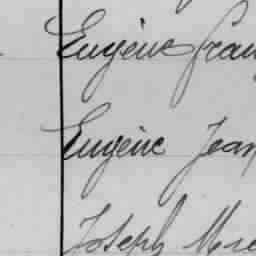 Eugène Fran
Eugène Jean
Joseph Mic